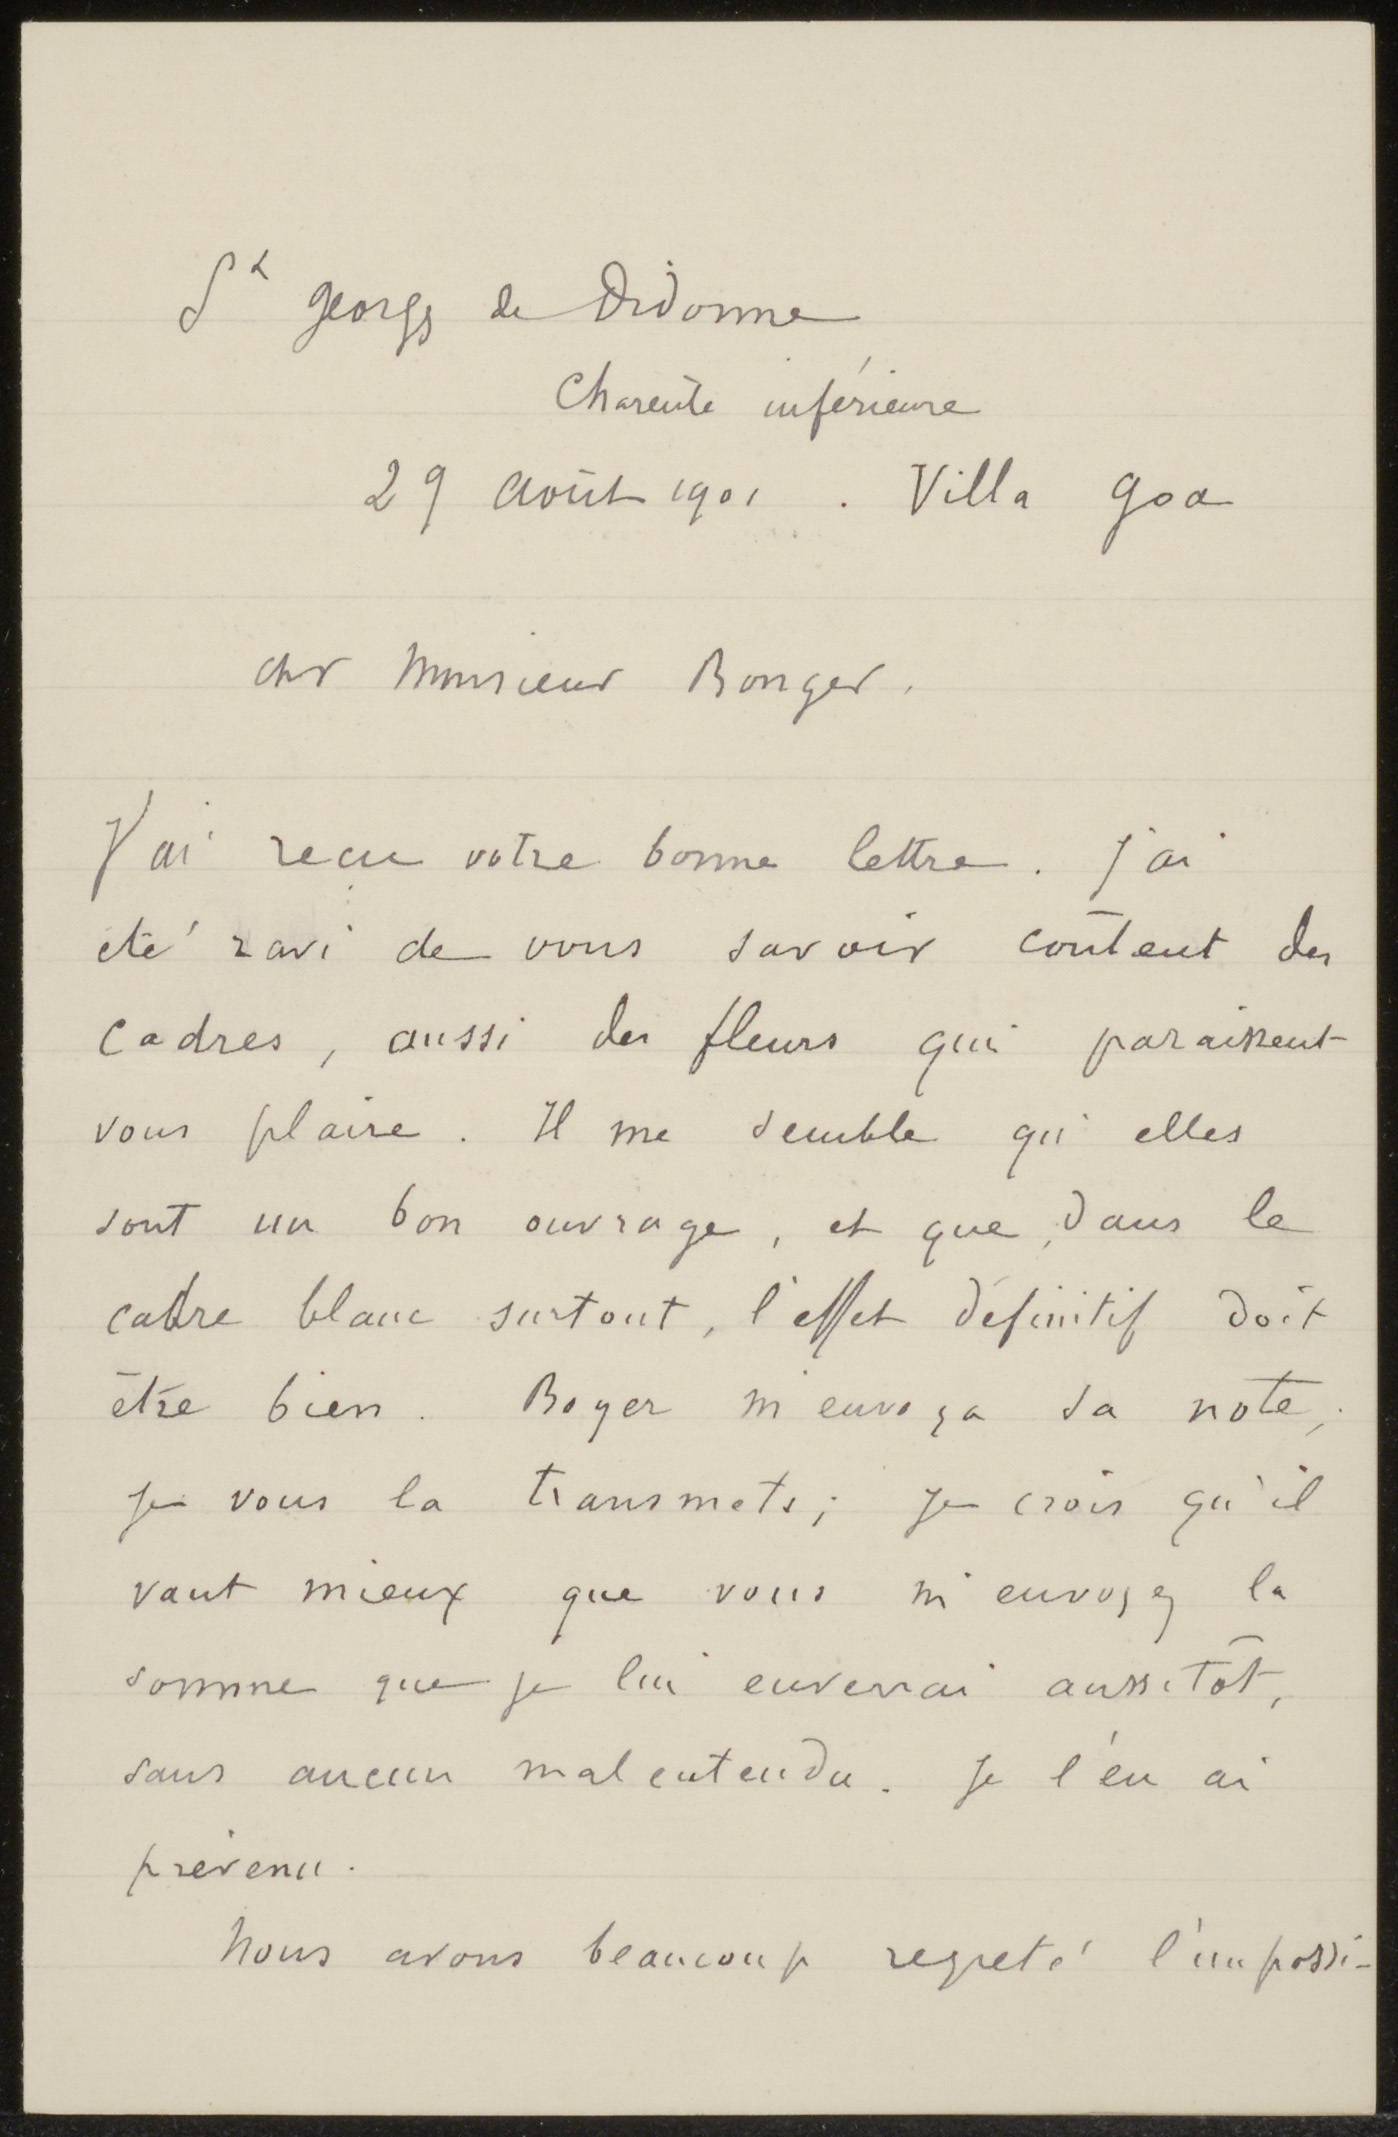 St Georges de Didonne
Charente inférieure
29 Août 1901 . Villa Goa
cher Monsieur Bonger.
J'ai reçu votre bonne lettre. j'ai
été ravi de vous savoir content des
cadres, aussi des fleurs qui paraissent
vous plaire. Il me semble qu'elles
sont un bon ouvrage, et que, dans le
cadre blanc surtout, l'effet définitif doit
être bien. Boyer m'envoya sa note,
je vous la transmets; je crois qu'il
vaut mieux que vous m'envoyez la
somme que je lui enverrai aussitôt,
sans aucun malentendu. Je l'en ai
prévenu.
Nous avons beaucoup regreté l'impossi-